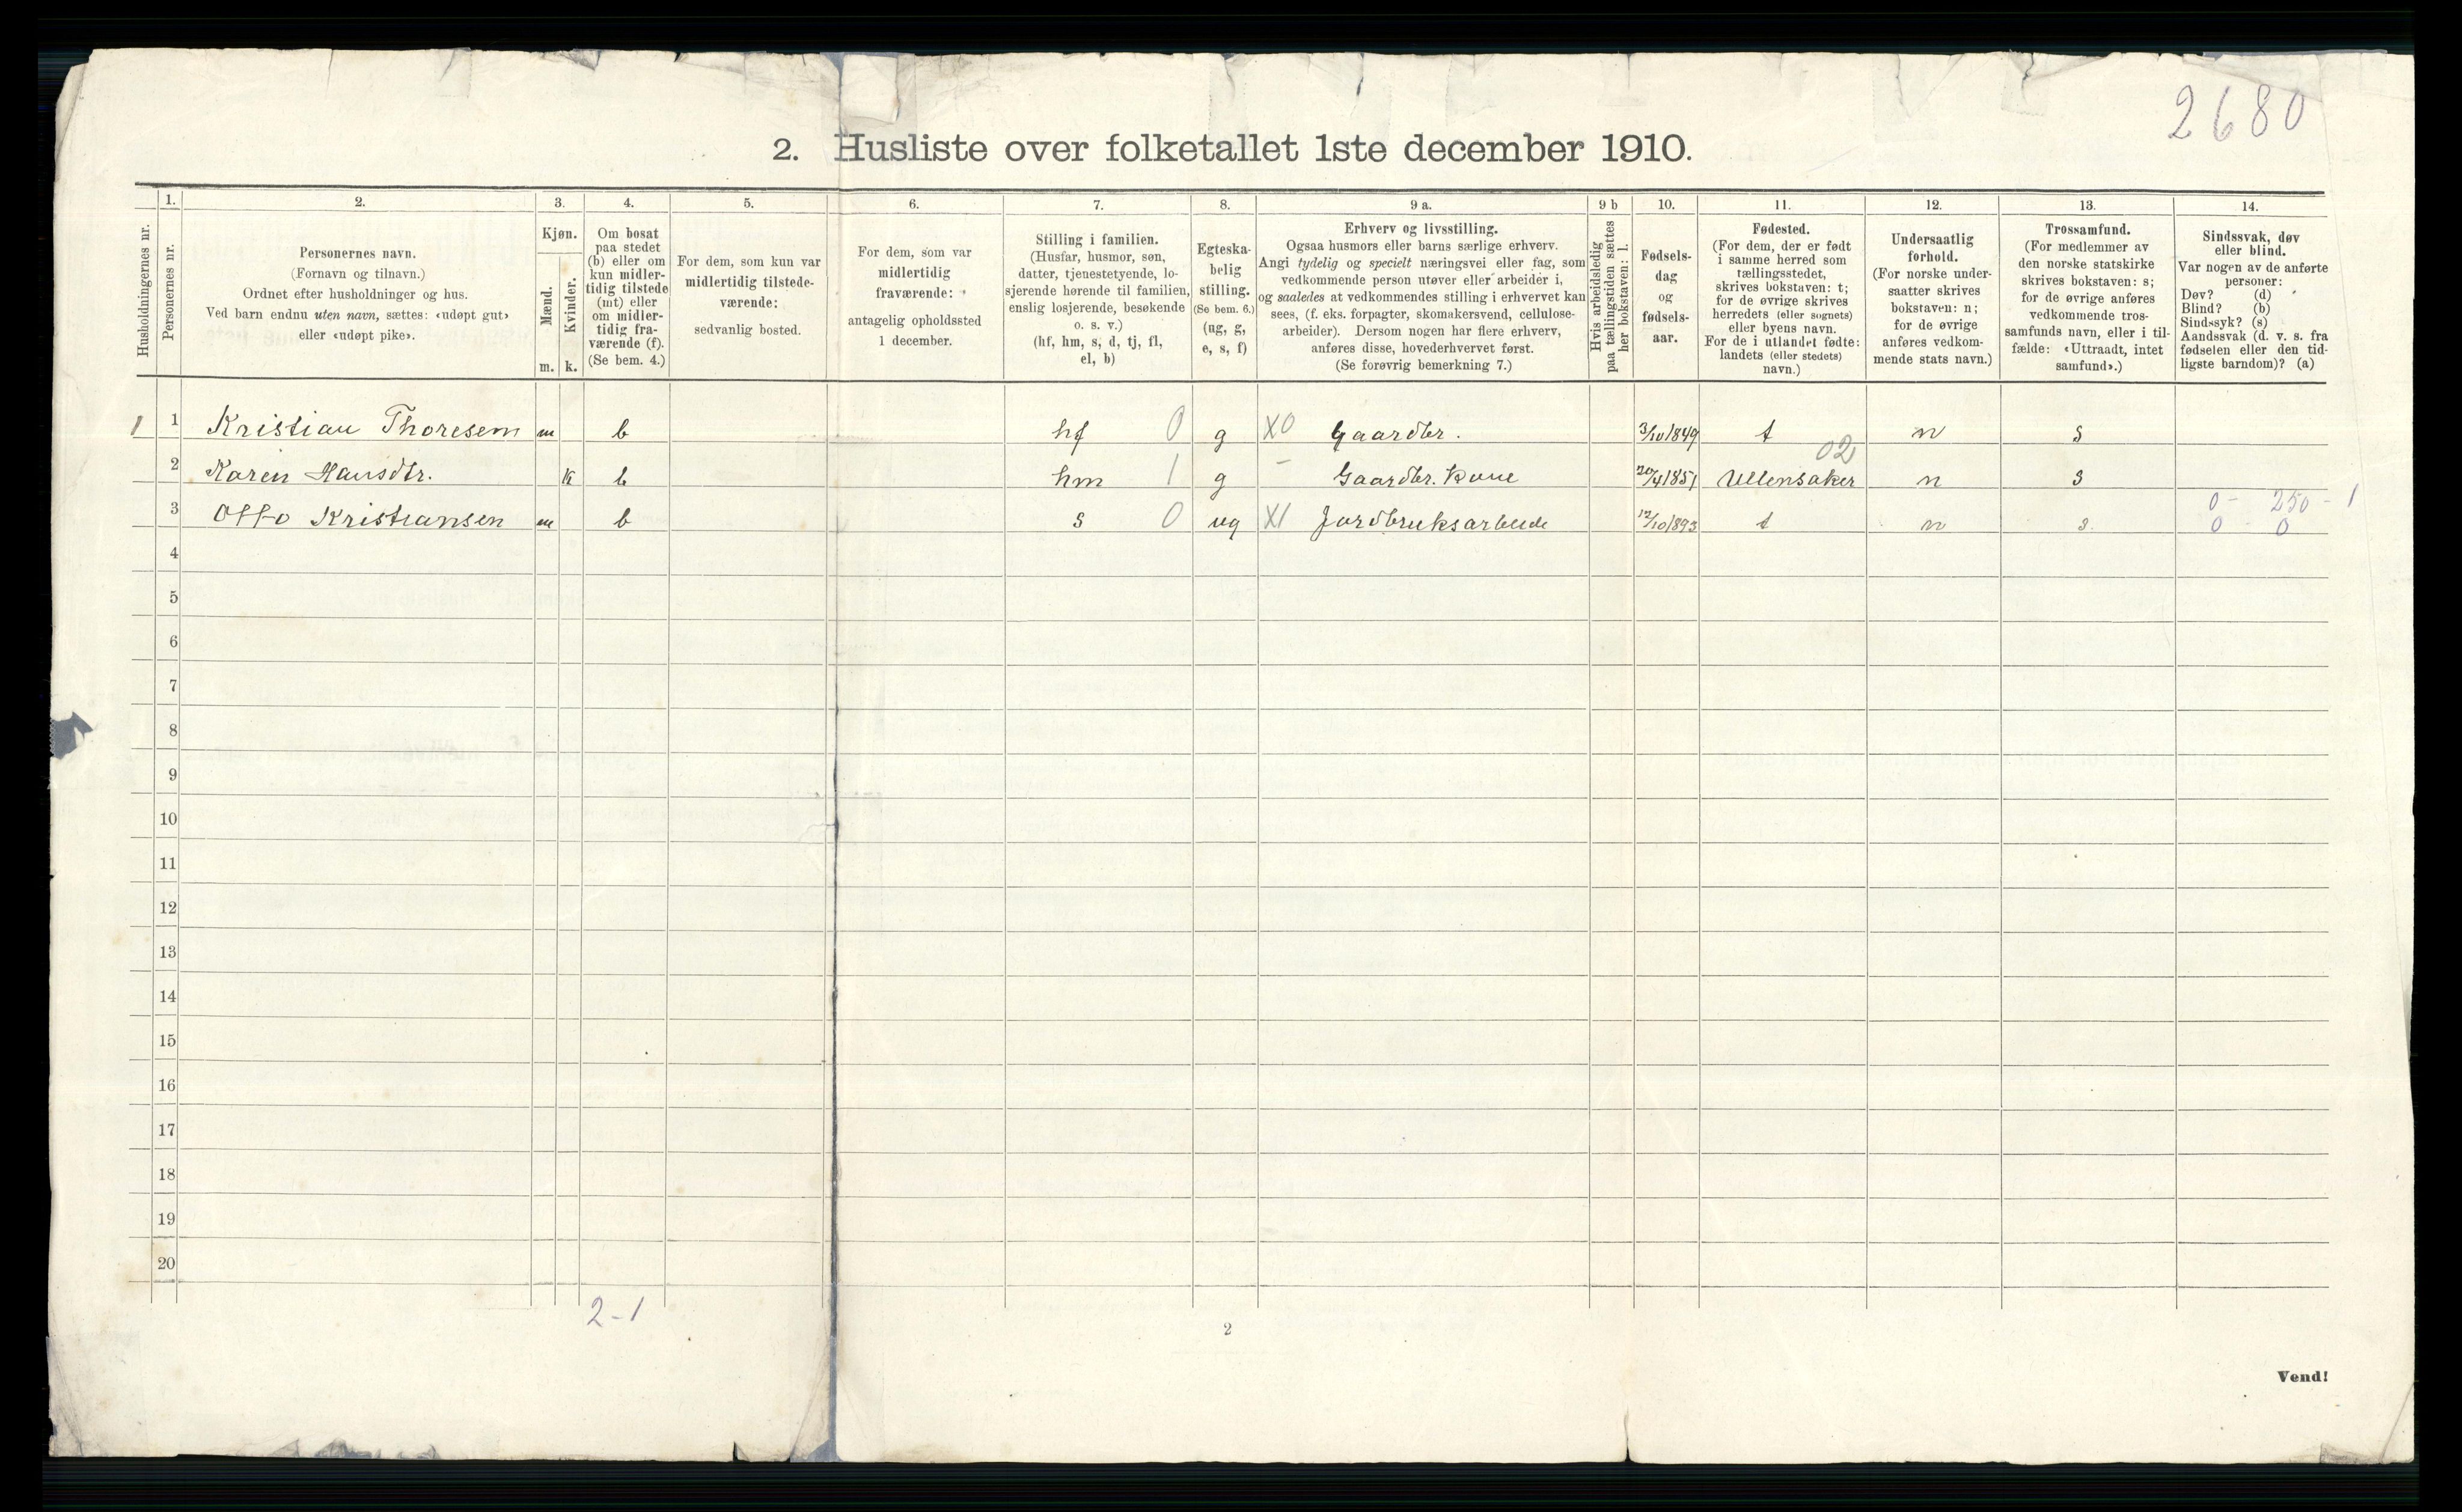 2680
2. Husliste over folketallet 1ste december 1910.
Husholdningernes nr.
1.
Personernes nr.
2.
Personernes navn.
(Fornavn og tilnavn.)
Ordnet efter husholdninger og hus.
Ved barn endnu uten navn, sættes: «udøpt gut»
eller «udøpt pike».
3.
Kjøn.
Mænd.
Kvinder.
m. k.
4.
Om bosat
paa stedet
(b) eller om
kun midler-
tidig tilstede
(mt) eller
om midler-
tidig fra-
værende (f).
(Se bem. 4.)
5.
For dem, som kun var
midlertidig tilstede-
værende:
sedvanlig bosted.
6.
For dem, som var
midlertidig
fraværende:
antagelig opholdssted
1 december.
7.
Stilling i familien.
(Husfar, husmor, søn,
datter, tjenestetyende, lo-
sjerende hørende til familien,
enslig losjerende, besøkende
o. s. v.)
(hf, hm, s, d, tj, fl,
el, b)
8.
Egteska-
belig
stilling.
(Se bem. 6.)
(ug, g,
e, s, f)
9 a.
Erhverv og livsstilling.
Ogsaa husmors eller barns særlige erhverv.
Angi tydelig og specielt næringsvei eller fag, som
vedkommende person utøver eller arbeider i,
og saaledes at vedkommendes stilling i erhvervet kan
sees, (f. eks. forpagter, skomakersvend, cellulose-
arbeider). Dersom nogen har flere erhverv,
anføres disse, hovederhvervet først.
(Se forøvrig bemerkning 7.)
9 b
Hvis arbeidsledig
paa tællingstiden sættes
her bokstaven: l.
10.
Fødsels-
dag
og
fødsels-
aar.
11.
Fødested.
(For dem, der er født
i samme herred som
tællingsstedet,
skrives bokstaven: t;
for de øvrige skrives
herredets (eller sognets)
eller byens navn.
For de i utlandet fødte:
landets (eller stedets)
navn.)
12.
Undersaatlig
forhold.
(For norske under-
saatter skrives
bokstaven: n;
for de øvrige
anføres vedkom-
mende stats navn.)
13.
Trossamfund.
(For medlemmer av
den norske statskirke
skrives bokstaven: s;
for de øvrige anføres
vedkommende tros-
samfunds navn, eller i til-
fælde: «Uttraadt, intet
samfund».)
14.
Sindssvak, døv
eller blind.
Var nogen av de anførte
personer:
Døv? (d)
Blind? (b)
Sindssyk? (s)
Aandssvak (d. v. s. fra
fødselen eller den tid-
ligste barndom)? (a)
1 1 Kristian Thoresem m b hf 0 g X0 Gaardbr. 3/10 1849 t n s
02
2 Karen Hansdtr. k b hm 1 g - Gaardbr. kone 20/4 1851 Ullensaker n s
0 - 250 - 1
3 Otto Kristiansen m b s 0 ug X1 Jordbruksarbeide 12/10 1893 t n s. 0 - 0
4
5
6
7
8
9
10
11
12
13
14
15
16
17
18
19
20
2-1
2
Vend!